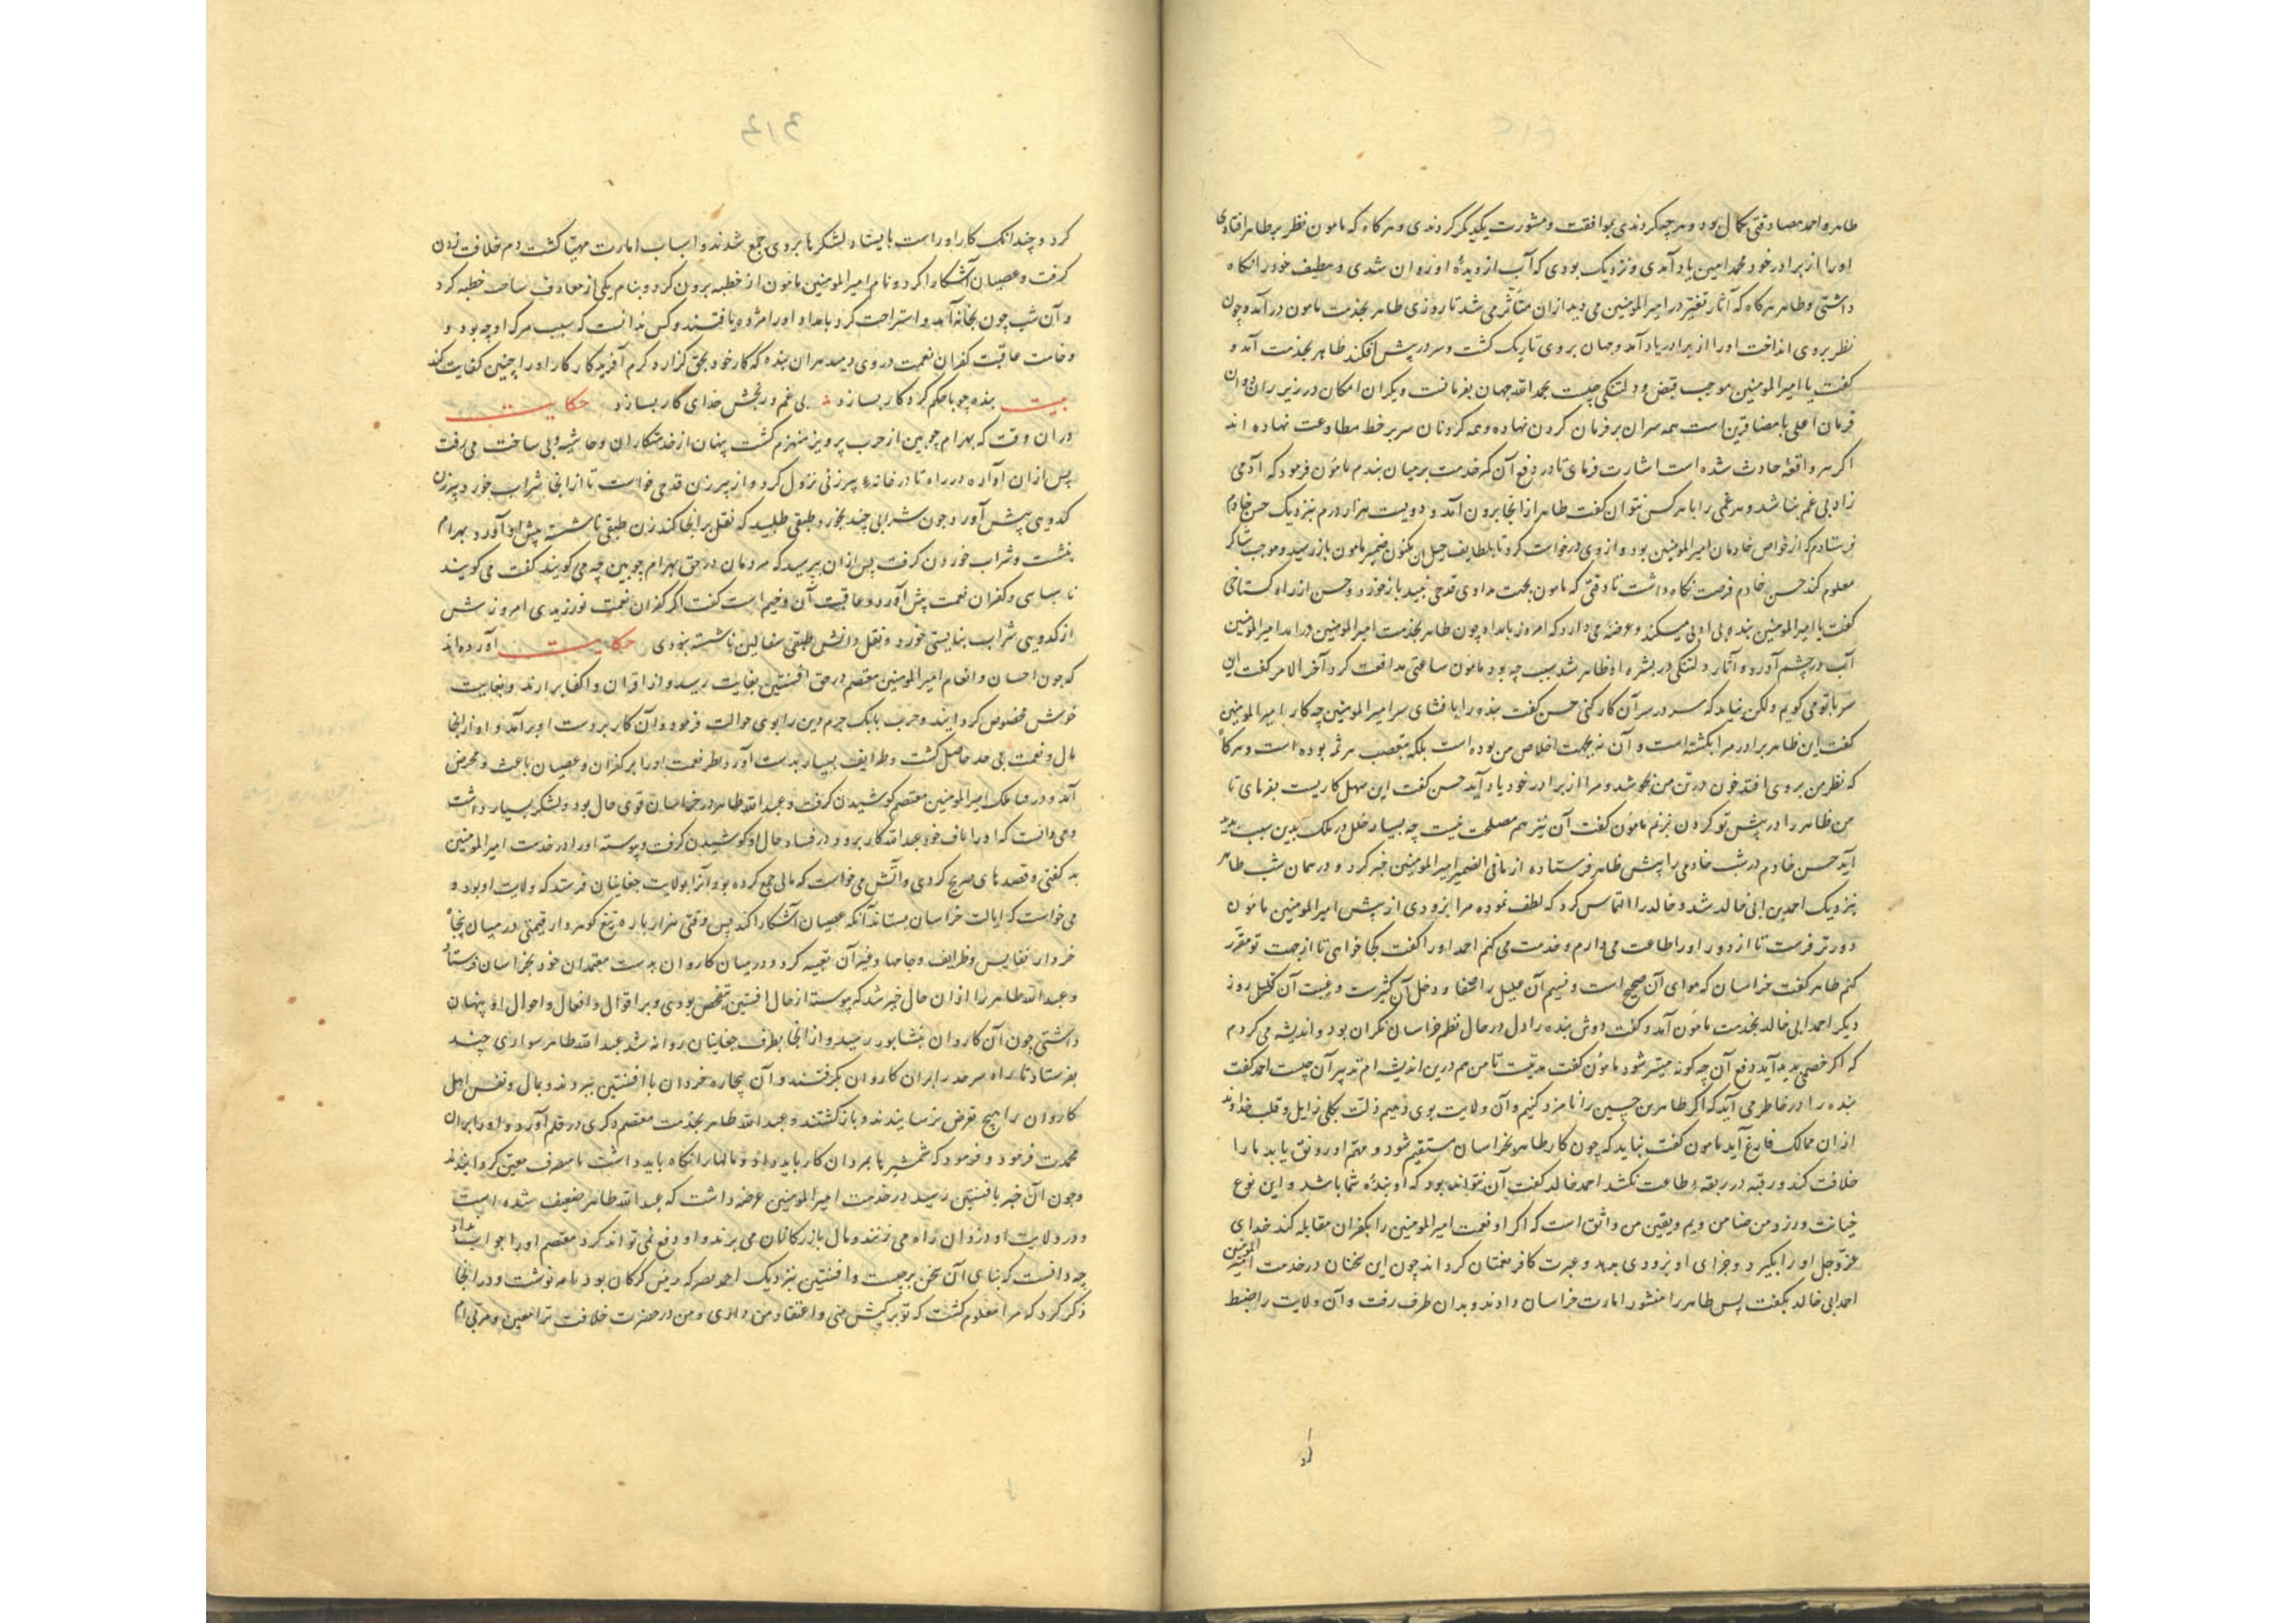 طاهر و احمد مصادقتی بکمال بود و هرچه کردندی بموافقت و مشورت یکدیگر کردندی و هرکاه که مامون نظر بر طاهر افتادی
او را از برادر خود محمد امین یاد آمدی و نزدیک بودی که آب از دیدهٔ او روان شدی و بطیف خود را نکاه
داشتی و طاهر هرکاه که آثار تغیر در امیرالمومنین می دید ازان متأثر می شد تا روزی طاهر بخدمت مامون درآمد و چون
نظر بروی انداخت او را از برادر یاد آمد و جهان بر وی تاریک کشت و سر در پیش افکند طاهر بخدمت آمد و
کفت یا امیرالمومنین موجب قبض و دلتنکی چیست بحمد الله جهان بفرمانست و یکران امکان در زیر ران و روان
فرمان اعلی با مضا قرین است همه سران بر فرمان کردن نهاده و همه کردنان سر بر خط مطاوعت نهاده اند
اکر هر واقعهٔ حادث شده است اشارت فرمای تا در دفع آن کمر خدمت بر میان بندم مامون فرمود که آدمی
زاد بی غم نباشد و هر غمی را با هر کس نتوان کفت طاهر از انجا برون آمد و دویست هزار درم بنزدیک حسن خادم
فرستاد که از خواص خادمان امیرالمومنین بود و از وی درخواست کرد تا بلطایف حیل از مکنون ضمیر مامون باز رسید و موجب
معلوم کند حسن خادم فرصت نکاه داشت تا وقتی که مامون بجهت مداوی قدحی نبید باز خورد و حسن از راه کستاخی
کفت یا امیرالمومنین بنده بی ادبی میکند و عرضه می دارد که امروز بامداد چون طاهر بخدمت امیرالمومنین درآمد امیرالمومنین
آب در چشم آورد و آثار دلتنکی در بشره او ظاهر شد سبب چه بود مامون ساعتی مدافعت کرد آخر الامر کفت این
سر با تو می کویم ولکن نباید که سر در سر آن کار کنی حسن کفت بنده را با فشای سر امیرالمومنین چه کار امیرالمومنین
کفت این طاهر برادر مرا بکشته است و آن نه بجهت اخلاص من بوده است بلکه بتعصب هرثمه بوده است و هرکاه
که نظر من بروی افتد خون در تن من بجوشد و مرا از برادر خود یاد آید حسن کفت این سهل کاریست بفرمای تا
من طاهر را در پیش تو کردن بزنم مامون کفت آن نیز هم مصلحت نیست چه بسیار خلل در ملک بدین سبب پدید
آید حسن خادم در شب خادمی را پیش طاهر فرستاد و از مافی الضمیر امیرالمومنین خبر کرد و در همان شب طاهر
بنزدیک احمد بن ابی خالد شد و خالد را التماس کرد که لطف نموده مرا بزودی از پیش امیرالمومنین مامون
دورتر فرست تا از دور او را طاعت می دارم و خدمت می کنم احمد او را کفت کجا خواهی تا از جهت تو مقرر
کنم طاهر کفت خراسان که هوای آن صحیح است و نسیم آن علیل را شفا و دخل آن کثیرست و عیب آن قلیل روز
دیکر احمد ابی خالد بخدمت مامون آمد و کفت دوش بنده را دل در حال نظم خراسان نکران بود و اندیشه می کردم
که اکر خصمی پدید آید دفع آن چه کونه میسر شود مامون کفت مدتیست تا من هم درین اندیشه ام تدبیر آن چیست احمد کفت
بنده را در خاطر می آید که اکر طاهر بن حسین را نامزد کنیم و آن ولایت بوی دهیم ذلت بکلی زایل و قلب خداوند
ازان ممالک فارغ آید مامون کفت نباید که چون کار طاهر بخراسان مستقیم شود و مهم او رونق یابد ما را
خلافت کند و رقبه در ربقهٔ طاعت نکشد احمد خالد کفت آن نتواند بود که او بندهٔ شما باشد و این نوع
خیانت ورزد من ضامن ویم و یقین من واثق است که اکر او نعمت امیرالمومنین را بکفران مقابله کند خدای
عزوجل او را بکیرد و جزای او بزودی بدهد و عبرت کافر نعمتان کرداند چون این سخنان در خدمت امیر المومنین
احمد ابی خالد بکفت پس طاهر را منشور امارت خراسان دادند و بدان طرف رفت و آن ولایت را ضبط
کرد و چندانک کار او راست بایستاد لشکرها بروی جمع شدند و اسباب امارت مهیا کشت دم خلافت زدن
کرفت و عصیان آشکارا کرد و نام امیرالمومنین مامون از خطبه برون کرد و بنام یکی از معارف سادات خطبه کرد
و آن شب چون بخانه آمد و استراحت کرد بامداد او را مرده یافتند و کس ندانست که سبب مرک او چه بود و
وخامت عاقبت کفران نعمت در وی رسید هر آن بنده که کار خود بحق کزارد کرم آفریدکار کار او را چنین کفایت کند
بیت بنده چو با حکم کردکار بسازد بی غم و رنجش خدای کار بسازد حکایت
در ان وقت که بهرام چوبین از حرب پرویز منهزم کشت پنهان از خدمتکاران و حاشیه وبی ساخت می رفت
پس ازان آواره در راه تا در خانهٔ پیرزنی نزول کرد و از پیرزن قدحی خواست تا از انجا شراب خورد پیرزن
کدویی پیش آورد چون شرابی چند بخورد طبقی طلبید که نقل بر انجا کند زن طبقی ناشسته پیش او آورد بهرام
بنشست و شراب خوردن کرفت پس ازان پرسید که مردمان در حق بهرام چوبین چه می کویند کفت می کویند
ناسپاسی و کفران نعمت پیش آورد و عاقبت آن وخیم است کفت اکر کفران نعمت نورزیدی امروزش
از کدویی شراب بنایستی خورد و نقل دانش طبقی سفالین ناشسته نبودی حکایت آورده اند
که چون احسان و انعام امیرالمومنین معتصم در حق افشین بغایت رسید و از اقران و اکفا برارند و بعنایت
خویش مخصوص کردانید و حرب بابک خرم دین را بوی حوالت فرمود و آن کار بر دست او برآمد و او از انجا
مال و نعمت بی حد حاصل کشت و طرایف بسیار بدست آورد بطر نعمت او را بر کفران و عصیان باعث و محرض
آمد و در فساد ملک امیرالمومنین معتصم کوشیدن کرفت و عبدالله طاهر در خراسان قوی حال بود و لشکر بسیار داشت
و می دانست که او را خلاف خود عبدالله کار برود در فساد حال او کوشیدن کرفت و پیوسته او را در خدمت امیرالمومنین
بد کفتی و قصدهای صریح کردی و آتش می خواست که مالی جمع کرده بود آنرا بولایت چغانیان فرستد که ولایت او بود و
می خواست که ایالت خراسان بستاند آنکه عصیان آشکارا کند پس وقتی هزار پاره تیغ کوهردار قیمتی در میان پنجاه
خروار نفایس و ظرایف و جامها و غیر آن تعبیه کرد و در میان کاروان بدست معتمدان خود بخراسان فرستاد
و عبدالله طاهر را ازان حال خبر شد که پیوسته از حال افشین متفحص بودی و بر اقوال و افعال و احوال او پنهان
داشتی چون آن کاروان بنشابور رسید و از انجا بطرف چغانیان روانه شد عبدالله طاهر سواری چند
بفرستاد تا براه سرخس بران کاروان بکرفتند و آن پنجاه خروار با افشین ببردند و بمال و نفس اهل
کاروان را هیچ تعرض نرسانیدند و بازکشتند و عبدالله طاهر بخدمت معتصم ذکری در قلم آورد و او را بران
محمدت فرمود و فرمود که شمشیر با بمردان کار باید داد و مالها را نکاه باید داشت تا مصرف معین کردانیده
و چون آن خبر بافشین رسید در خدمت امیرالمومنین عرضه داشت که عبدالله طاهر ضعیف شده است
و در ولایت او دزدان راه می زنند و مال بازرکانان می برند و او دفع نمی تواند کرد معتصم او را جواب نداد
چه دانست که بنای آن سخن بر چیست و افشین بنزدیک احمد نصر که رئیس کرکان بود نامه نوشت و در انجا
ذکر کرد که مرا معلوم کشت که تو بر کیش منی و اعتقاد من داری و من در حضرت خلافت ترا معین و مربی ام